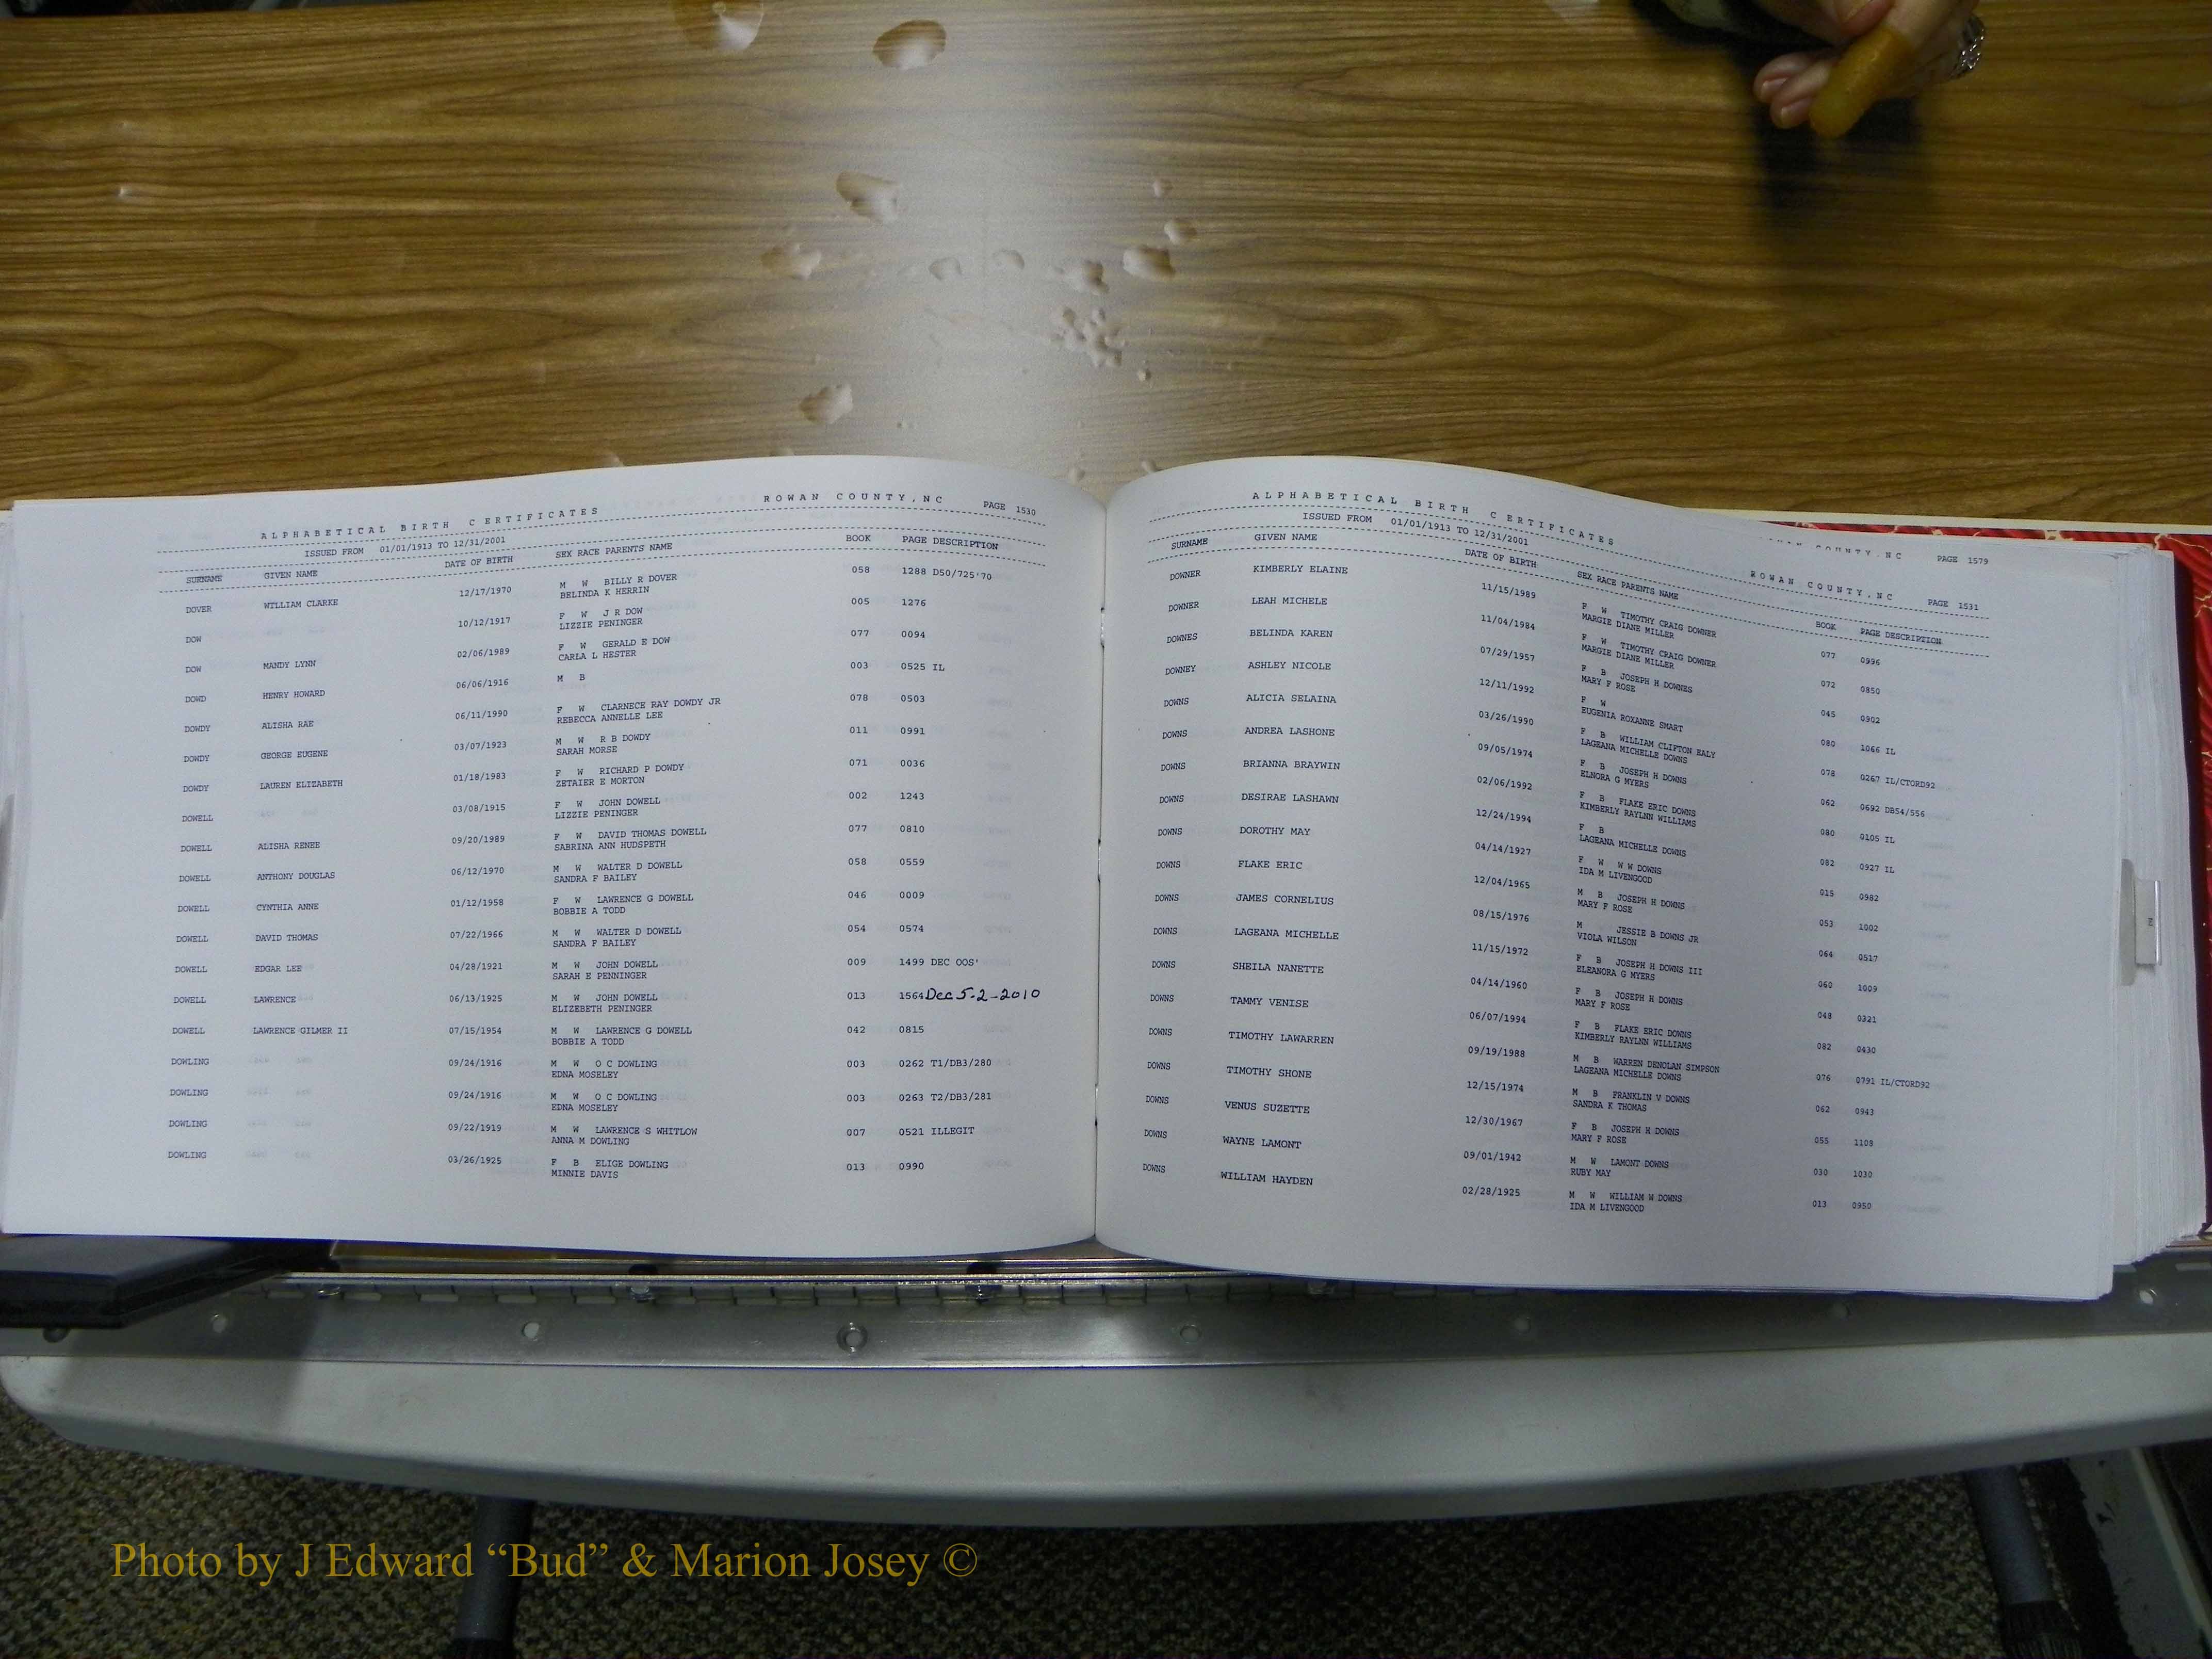 ALPHABETICAL BIRTH CERTIFICATES ROWAN COUNTY,NC PAGE 1530
ISSUED FROM 01/01/1913 TO 12/31/2001
SURNAME GIVEN NAME DATE OF BIRTH SEX RACE PARENTS NAME BOOK PAGE DESCRIPTION
DOVER WILLIAM CLARKE 12/17/1970 M W BILLY R DOVER 058 1288 D50/725'70
BELINDA K HERRIN
DOW 10/12/1917 F W J R DOW 005 1276
LIZZIE PENINGER
DOW MANDY LYNN 02/06/1989 F W GERALD E DOW 077 0094
CARLA L HESTER
DOWD HENRY HOWARD 06/06/1916 M B 003 0525 IL
DOWDY ALISHA RAE 06/11/1990 F W CLARNECE RAY DOWDY JR 078 0503
REBECCA ANNELLE LEE
DOWDY GEORGE EUGENE 03/07/1923 M W R B DOWDY 011 0991
SARAH MORSE
DOWDY LAUREN ELIZABETH 01/18/1983 F W RICHARD P DOWDY 071 0036
ZETAIER E MORTON
DOWELL 03/08/1915 F W JOHN DOWELL 002 1243
LIZZIE PENINGER
DOWELL ALISHA RENEE 09/20/1989 F W DAVID THOMAS DOWELL 077 0810
SABRINA ANN HUDSPETH
DOWELL ANTHONY DOUGLAS 06/12/1970 M W WALTER D DOWELL 058 0559
SANDRA F BAILEY
DOWELL CYNTHIA ANNE 01/12/1958 F W LAWRENCE G DOWELL 046 0009
BOBBIE A TODD
DOWELL DAVID THOMAS 07/22/1966 M W WALTER D DOWELL 054 0574
SANDRA F BAILEY
DOWELL EDGAR LEE 04/28/1921 M W JOHN DOWELL 009 1499 DEC OOS'
SARAH E PENNINGER
DOWELL LAWRENCE 06/13/1925 M W JOHN DOWELL 013 1564 Dec 5-2-2010
ELIZEBETH PENINGER
DOWELL LAWRENCE GILMER II 07/15/1954 M W LAWRENCE G DOWELL 042 0815
BOBBIE A TODD
DOWLING 09/24/1916 M W O C DOWLING 003 0262 T1/DB3/280
EDNA MOSELEY
DOWLING 09/24/1916 M W O C DOWLING 003 0263 T2/DB3/281
EDNA MOSELEY
DOWLING 09/22/1919 M W LAWRENCE S WHITLOW 007 0521 ILLEGIT
ANNA M DOWLING
DOWLING 03/26/1925 F B ELIGE DOWLING 013 0990
MINNIE DAVIS
COUNTY,NC PAGE 1579
ALPHABETICAL BIRTH CERTIFICATES ROWAN COUNTY,NC PAGE 1531
ISSUED FROM 01/01/1913 TO 12/31/2001
SURNAME GIVEN NAME DATE OF BIRTH SEX RACE PARENTS NAME BOOK PAGE DESCRIPTION
DOWNER KIMBERLY ELAINE 11/15/1989 F W TIMOTHY CRAIG DOWNER 077 0996
MARGIE DIANE MILLER
DOWNER LEAH MICHELE 11/04/1984 F W TIMOTHY CRAIG DOWNER 072 0850
MARGIE DIANE MILLER
DOWNES BELINDA KAREN 07/29/1957 F B JOSEPH H DOWNES 045 0902
MARY F ROSE
DOWNEY ASHLEY NICOLE 12/11/1992 F W 080 1066 IL
EUGENIA ROXANNE SMART
DOWNS ALICIA SELAINA 03/26/1990 F B WILLIAM CLIFTON EALY 078 0267 IL/CTORD92
LAGEANA MICHELLE DOWNS
DOWNS ANDREA LASHONE 09/05/1974 F B JOSEPH H DOWNS 062 0692 DB54/556
ELNORA G MYERS
DOWNS BRIANNA BRAYWIN 02/06/1992 F B FLAKE ERIC DOWNS 080 0105 IL
KIMBERLY RAYLNN WILLIAMS
DOWNS DESIRAE LASHAWN 12/24/1994 F B 082 0927 IL
LAGEANA MICHELLE DOWNS
DOWNS DOROTHY MAY 04/14/1927 F W W W DOWNS 015 0982
IDA M LIVENGOOD
DOWNS FLAKE ERIC 12/04/1965 M B JOSEPH H DOWNS 053 1002
MARY F ROSE
DOWNS JAMES CORNELIUS 08/15/1976 M JESSIE B DOWNS JR 064 0517
VIOLA WILSON
DOWNS LAGEANA MICHELLE 11/15/1972 F B JOSEPH H DOWNS III 060 1009
ELEANORA G MYERS
DOWNS SHEILA NANETTE 04/14/1960 F B JOSEPH H DOWNS 048 0321
MARY F ROSE
DOWNS TAMMY VENISE 06/07/1994 F B FLAKE ERIC DOWNS 082 0430
KIMBERLY RAYLNN WILLIAMS
DOWNS TIMOTHY LAWARREN 09/19/1988 M B WARREN DENOLAN SIMPSON 076 0791 IL/CTORD92
LAGEANA MICHELLE DOWNS
DOWNS TIMOTHY SHONE 12/15/1974 M B FRANKLIN V DOWNS 062 0943
SANDRA K THOMAS
DOWNS VENUS SUZETTE 12/30/1967 F B JOSEPH H DOWNS 055 1108
MARY F ROSE
DOWNS WAYNE LAMONT 09/01/1942 M W LAMONT DOWNS 030 1030
RUBY MAY
DOWNS WILLIAM HAYDEN 02/28/1925 M W WILLIAM W DOWNS 013 0950
IDA M LIVENGOOD
Photo by J Edward “Bud” & Marion Josey ©